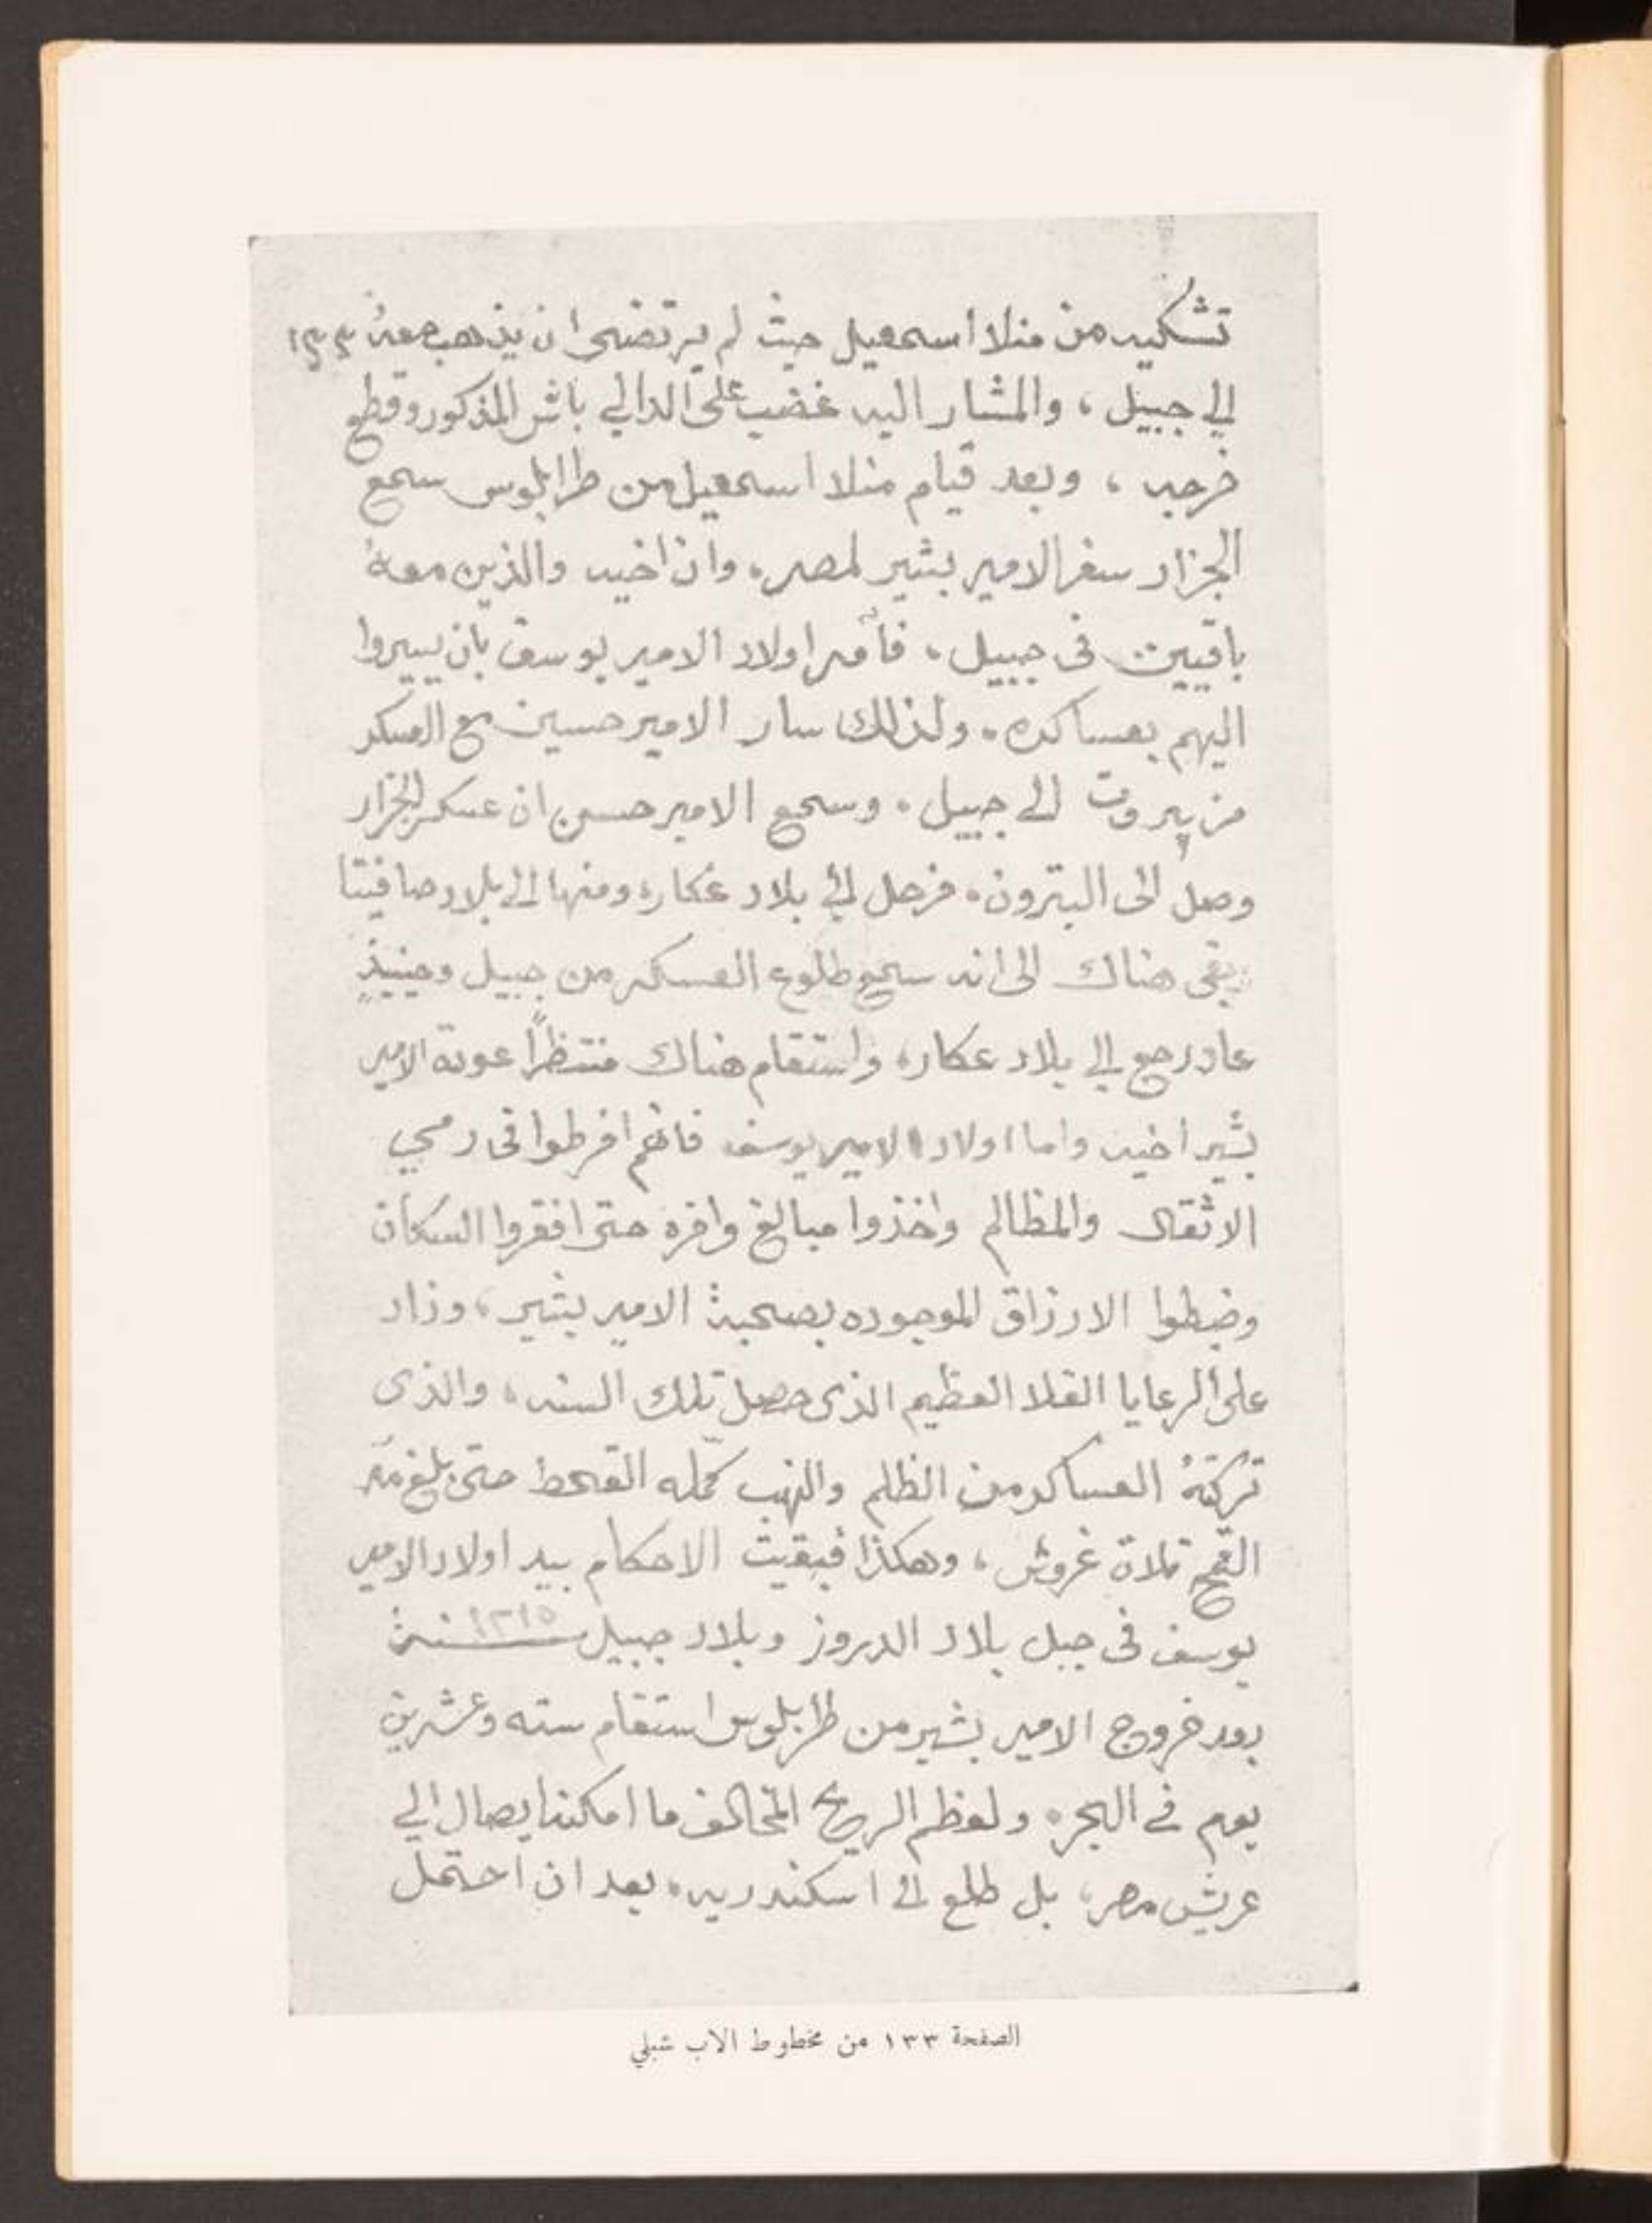 تشكيه من منلا اسمعيل حيث لم يرتضى ان يذهب معهُ ١٣٣
الي جبيل ، والمشار اليه غضب على الدالي باش المذكور وقطع
خرجه ، وبعد قيام منلا اسمعيل من طرابلوس سمع
الجزار سفر الامير بشير لمصر . وان اخيه والذين معهُ
باقيين في جبيل . فأمر اولاد الامير يوسف بان يسيروا
اليهم بعساكره . ولذلك سار الامير حسين مع العسكر
من بيروت الى جبيل . وسمع الامير حسن ان عسكر الجزار
وصل الى البترون . فرحل الي بلاد عكار ، ومنها الى بلاد صافيتا
بقي هناك الى انه سمع طلوع العسكر من جبيل وحينيذٍ
عاد رجع الي بلاد عكار ، واستقام هناك منتظراً عودة الامير
بشير اخيه واما اولاد الامير يوسف فانهم افرطوا في رمي
الاثقال والمظالم واخذوا مبالغ وافره حتى افقروا السكان
وضبطوا الارزاق الموجوده بصحبة الامير بشير ، وزاد
على الرعايا الغلا العظيم الذى حصل تلك السنه ، والذى
تركتهُ العساكر من الظلم والنهب كمّله القحط حتى بلغ مدّ
القمح ثلاثة غروش ، وهكذا فبقيت الاحكام بيد اولاد الامير
يوسف في جبل بلاد الدروز وبلاد جبيل سنة ١٢١٥
بعد خروج الامير بشير من طرابلوس استقام سته وعشرين
يوم في البحر . ولعظم الريح المخالف ما امكنه ايصال الي
عريش مصر ، بل طلع الى اسكندريه . بعد ان احتمل
الصفحة ١٣٣ من مخطوط الاب شبلي